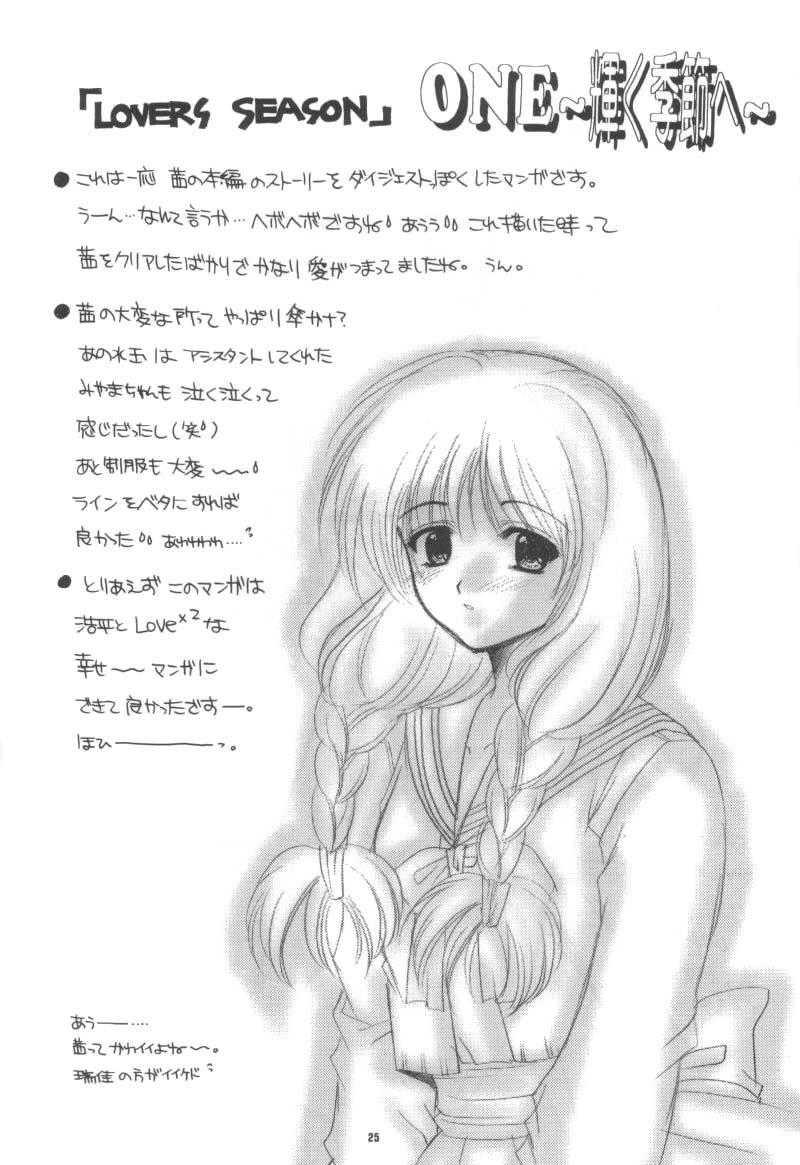 「LOVERS SEASON」 ONE～輝く季節へ～
●これは一応 茜の本編のストーリーを ダイジェストっぽくしたマンガです。
うーん…なんて言うか…ヘボヘボですね。あうう。。これ描いた時って
茜をクリアしたばかりで かなり 愛がつまってましたね。うん。
●茜の大変な所って やっぱり 傘かナ?
あの水玉 は アシスタント してくれた
みやまちゃんも 泣く泣くって
感じだったし(笑)
あと制服も 大変〜〜。
ラインをベタにすれば
良かった。。あわわわわ….?
●とりあえず このマンガは
浩平と Love×2 な
幸せ〜〜 マンガに
できて 良かったですー。
ほひ――――っ。
あうー….
茜って かわイイよね〜。
瑞佳 の方がイイケド?
25